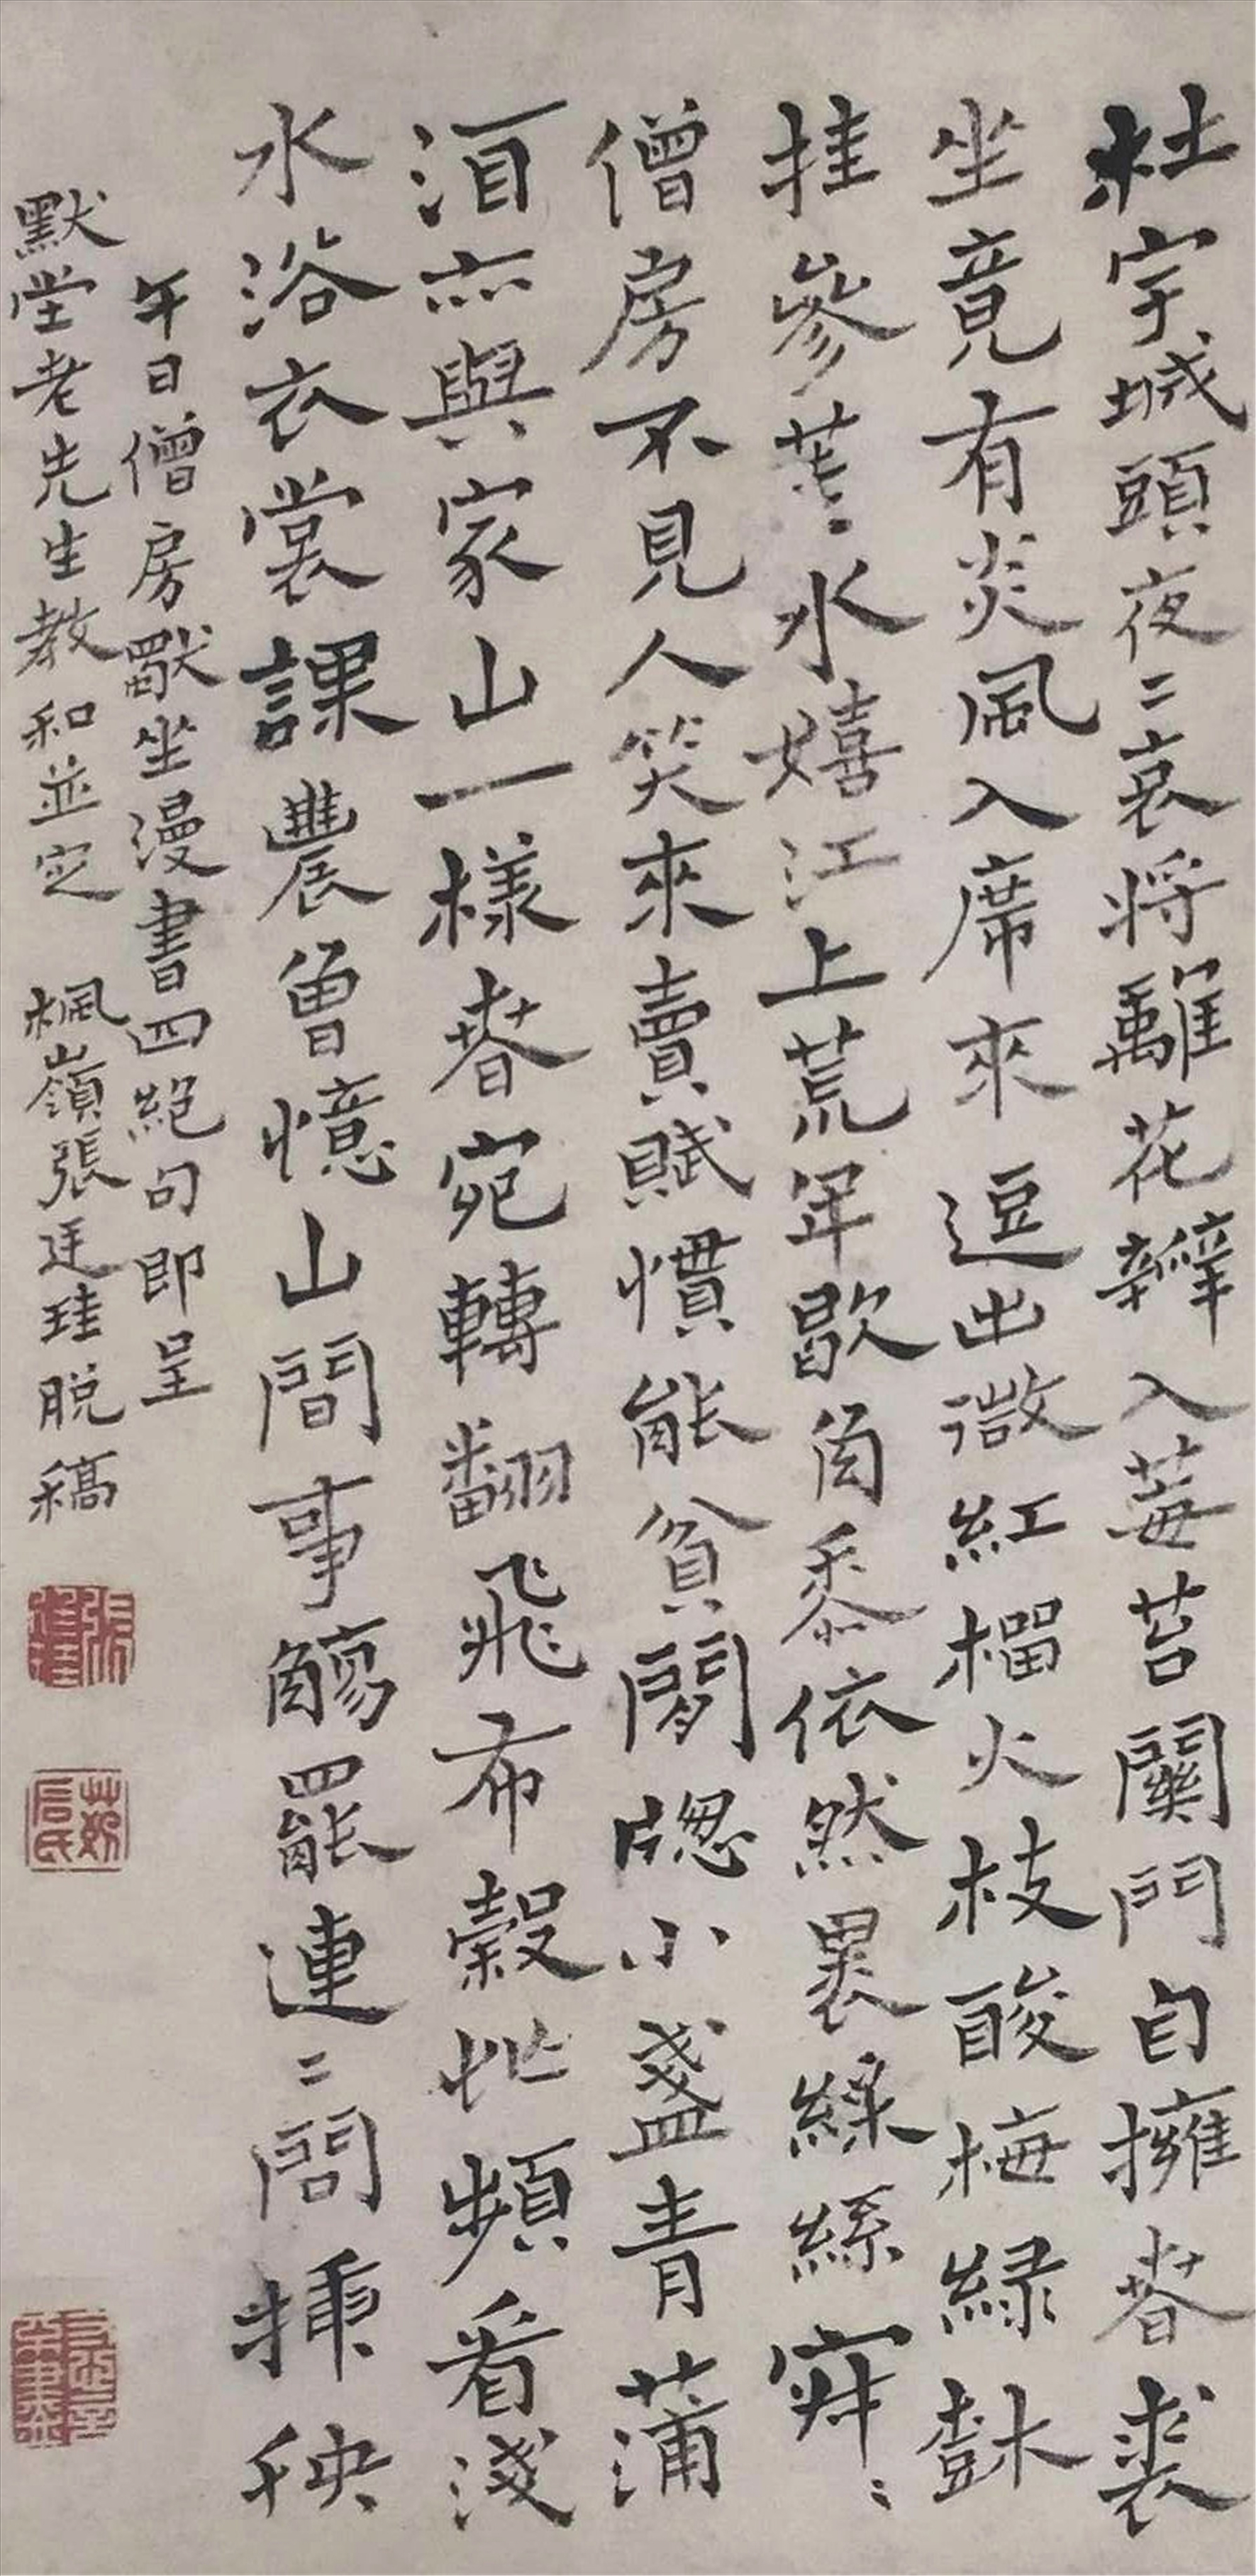 杜宇城頭夜〻哀将離花辦入莓苔關門自擁春裘
坐竟有炎風入席來逗出微紅榴火枝酸梅緑
挂參差水嬉江上荒年歇角黍依然裹綵絲
僧房不見人笑來賣賦慣能貧閒窻小盞青蒲
酒亦與家山一樣春宛轉翻飛布穀忙頻看淺
水浴衣裳課農曾憶山間事觴罷連〻問插秧
午日僧房獨坐漫書四絶句即呈
默堂老先生教和並定 楓嶺張廷珪脫稿